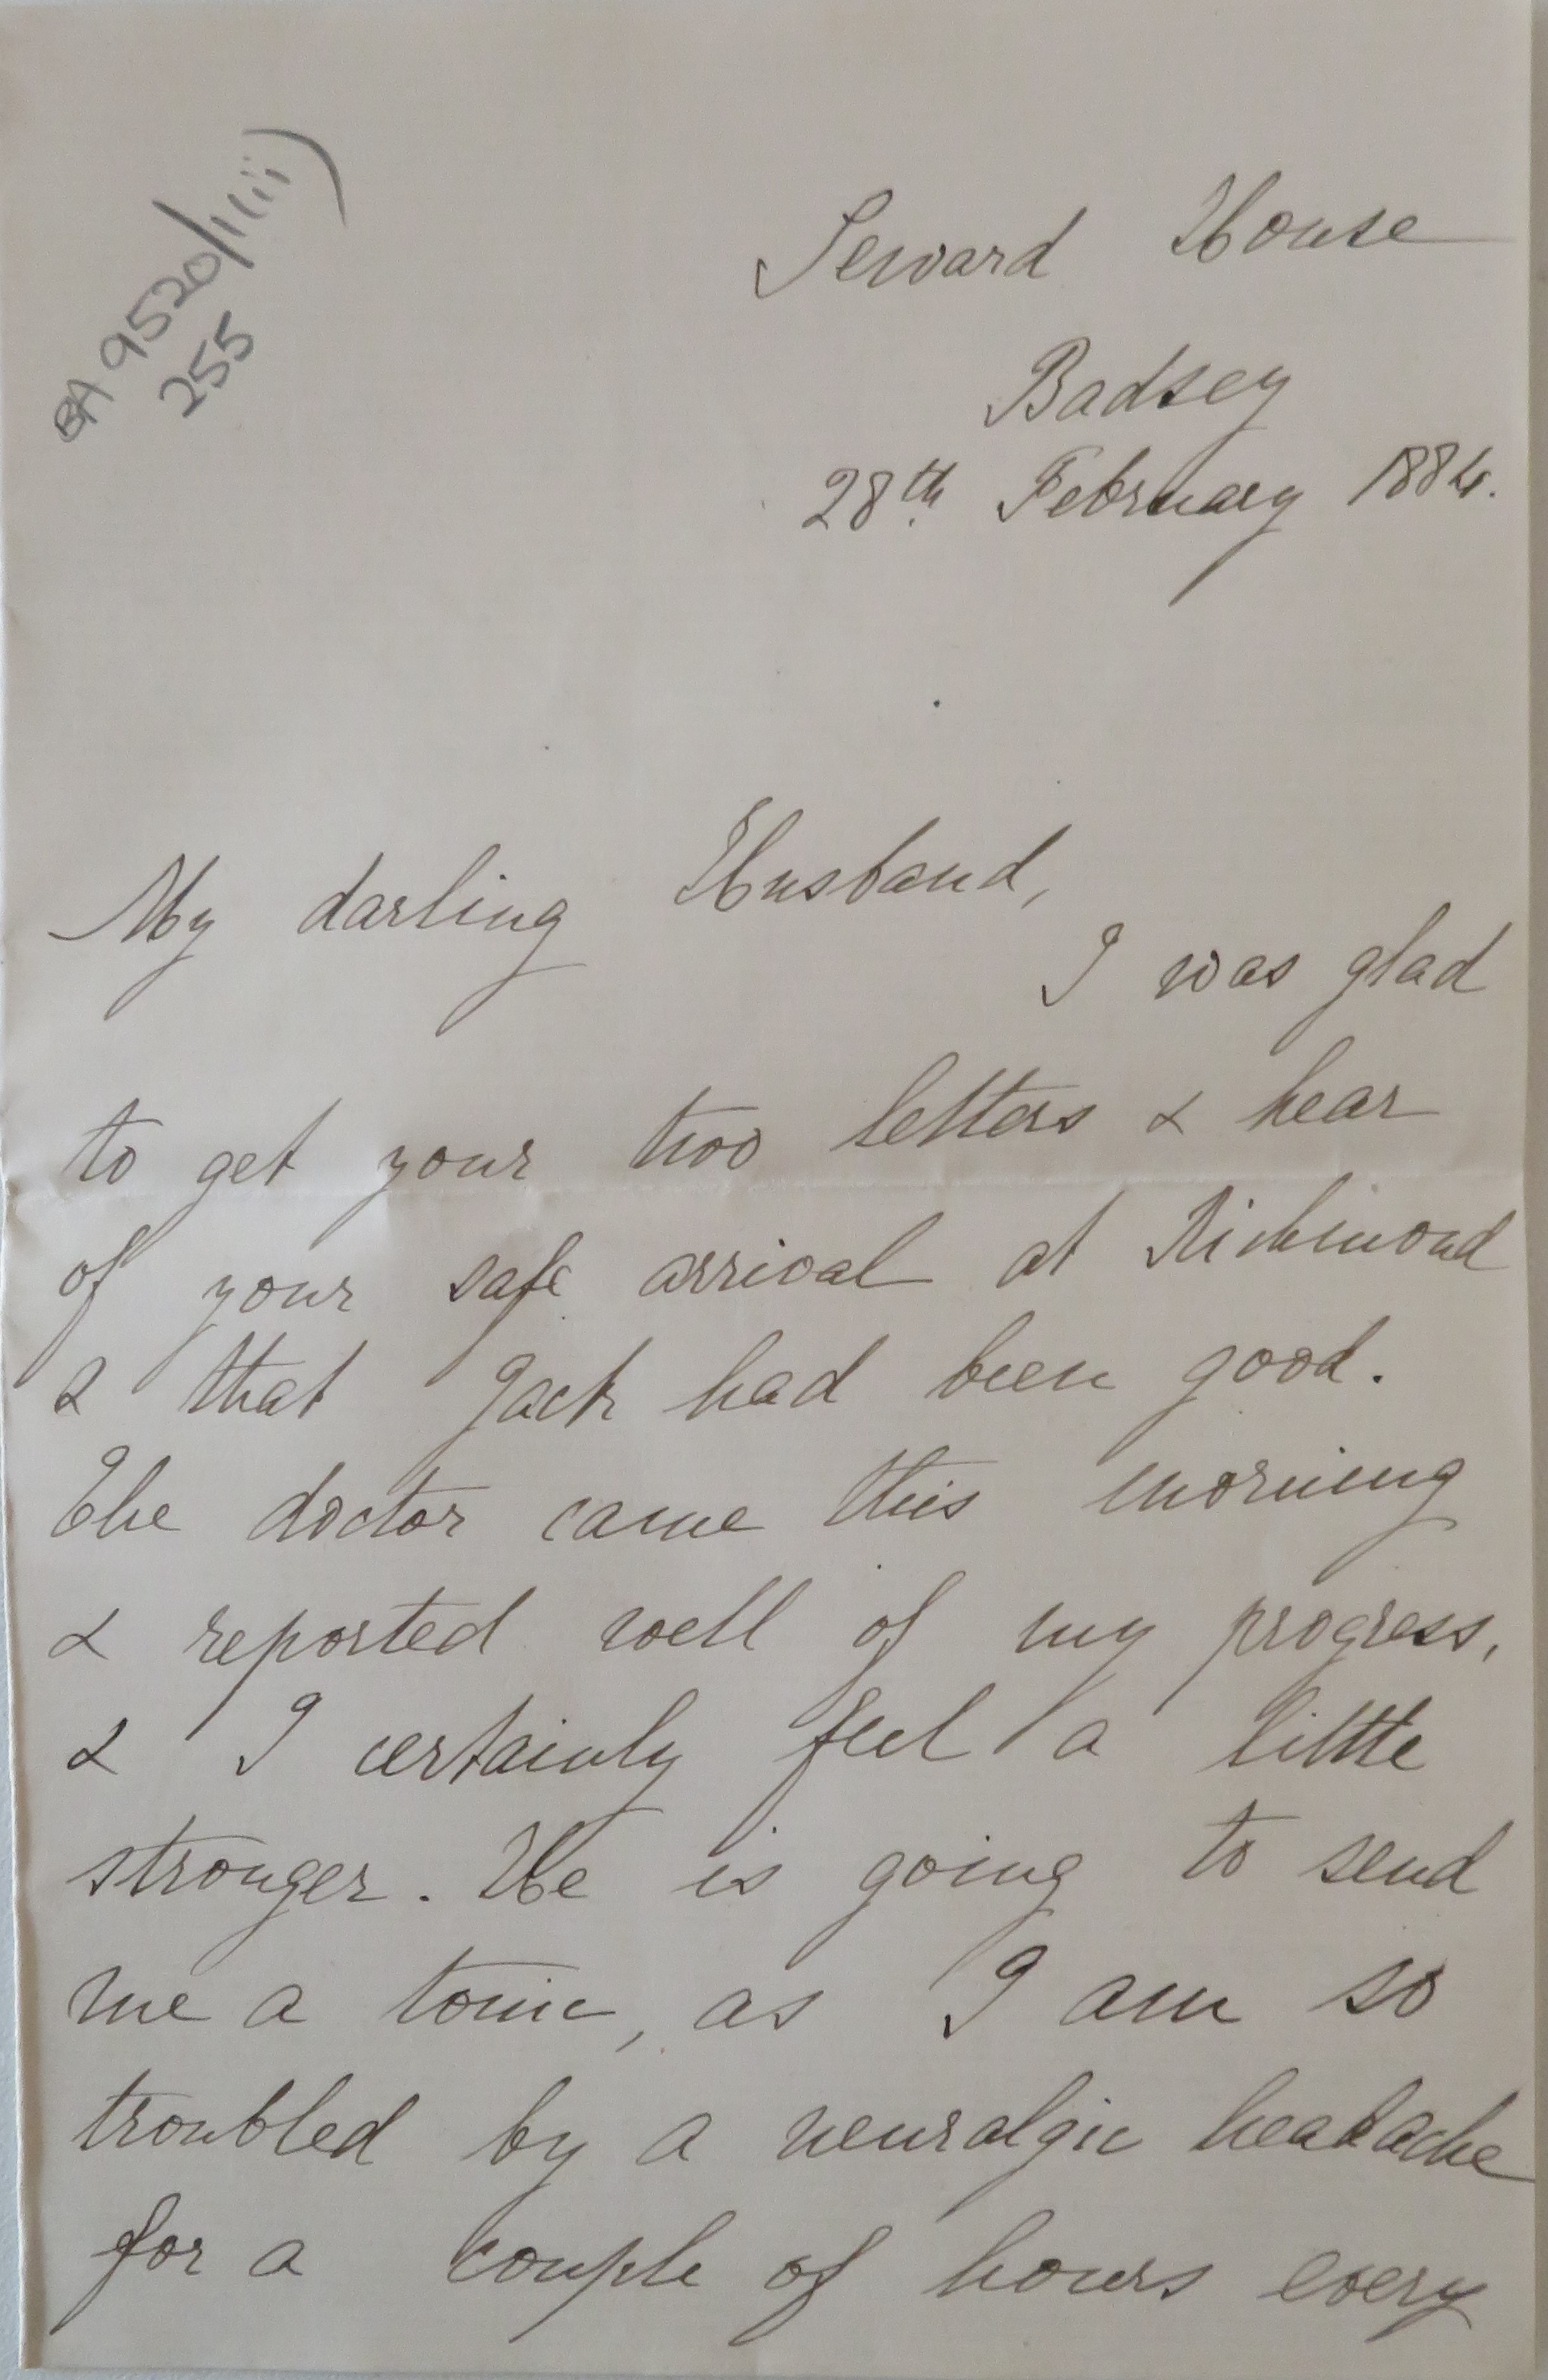 BA 9520/1(iii)
255
Seward House
Badsey
28th February 1884.
My darling Husband,
I was glad
to get your two letters & hear
of your safe arrival at Richmond
& that Jack had been good.
The doctor came this morning
& reported well of my progress,
& I certainly feel a little
stronger. He is going to send
me a tonic, as I am so
troubled by a neuralgic headache
for a couple of hours every